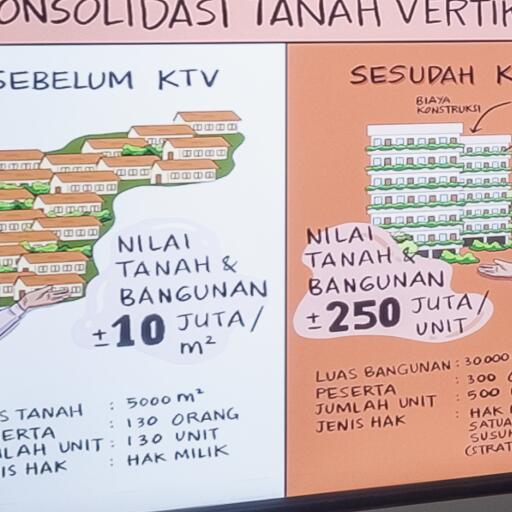 ONSOLIDASI TANAH VERTIK
SEBELUM KTV
NILAI
TANAH &
BANGUNAN
±10 JUTA/
m²
S TANAH : 5000 m²
ERTA : 130 ORANG
LAH UNIT : 130 UNIT
IS HAK : HAK MILIK
SESUDAH K
BIAYA
KONSTRUKSI
NILAI
TANAH &
BANGUNAN
±250 JUTA/
UNIT
LUAS BANGUNAN : 30000
PESERTA : 300
JUMLAH UNIT : 500
JENIS HAK : HAK
SATUA
SUSU
(STRAT